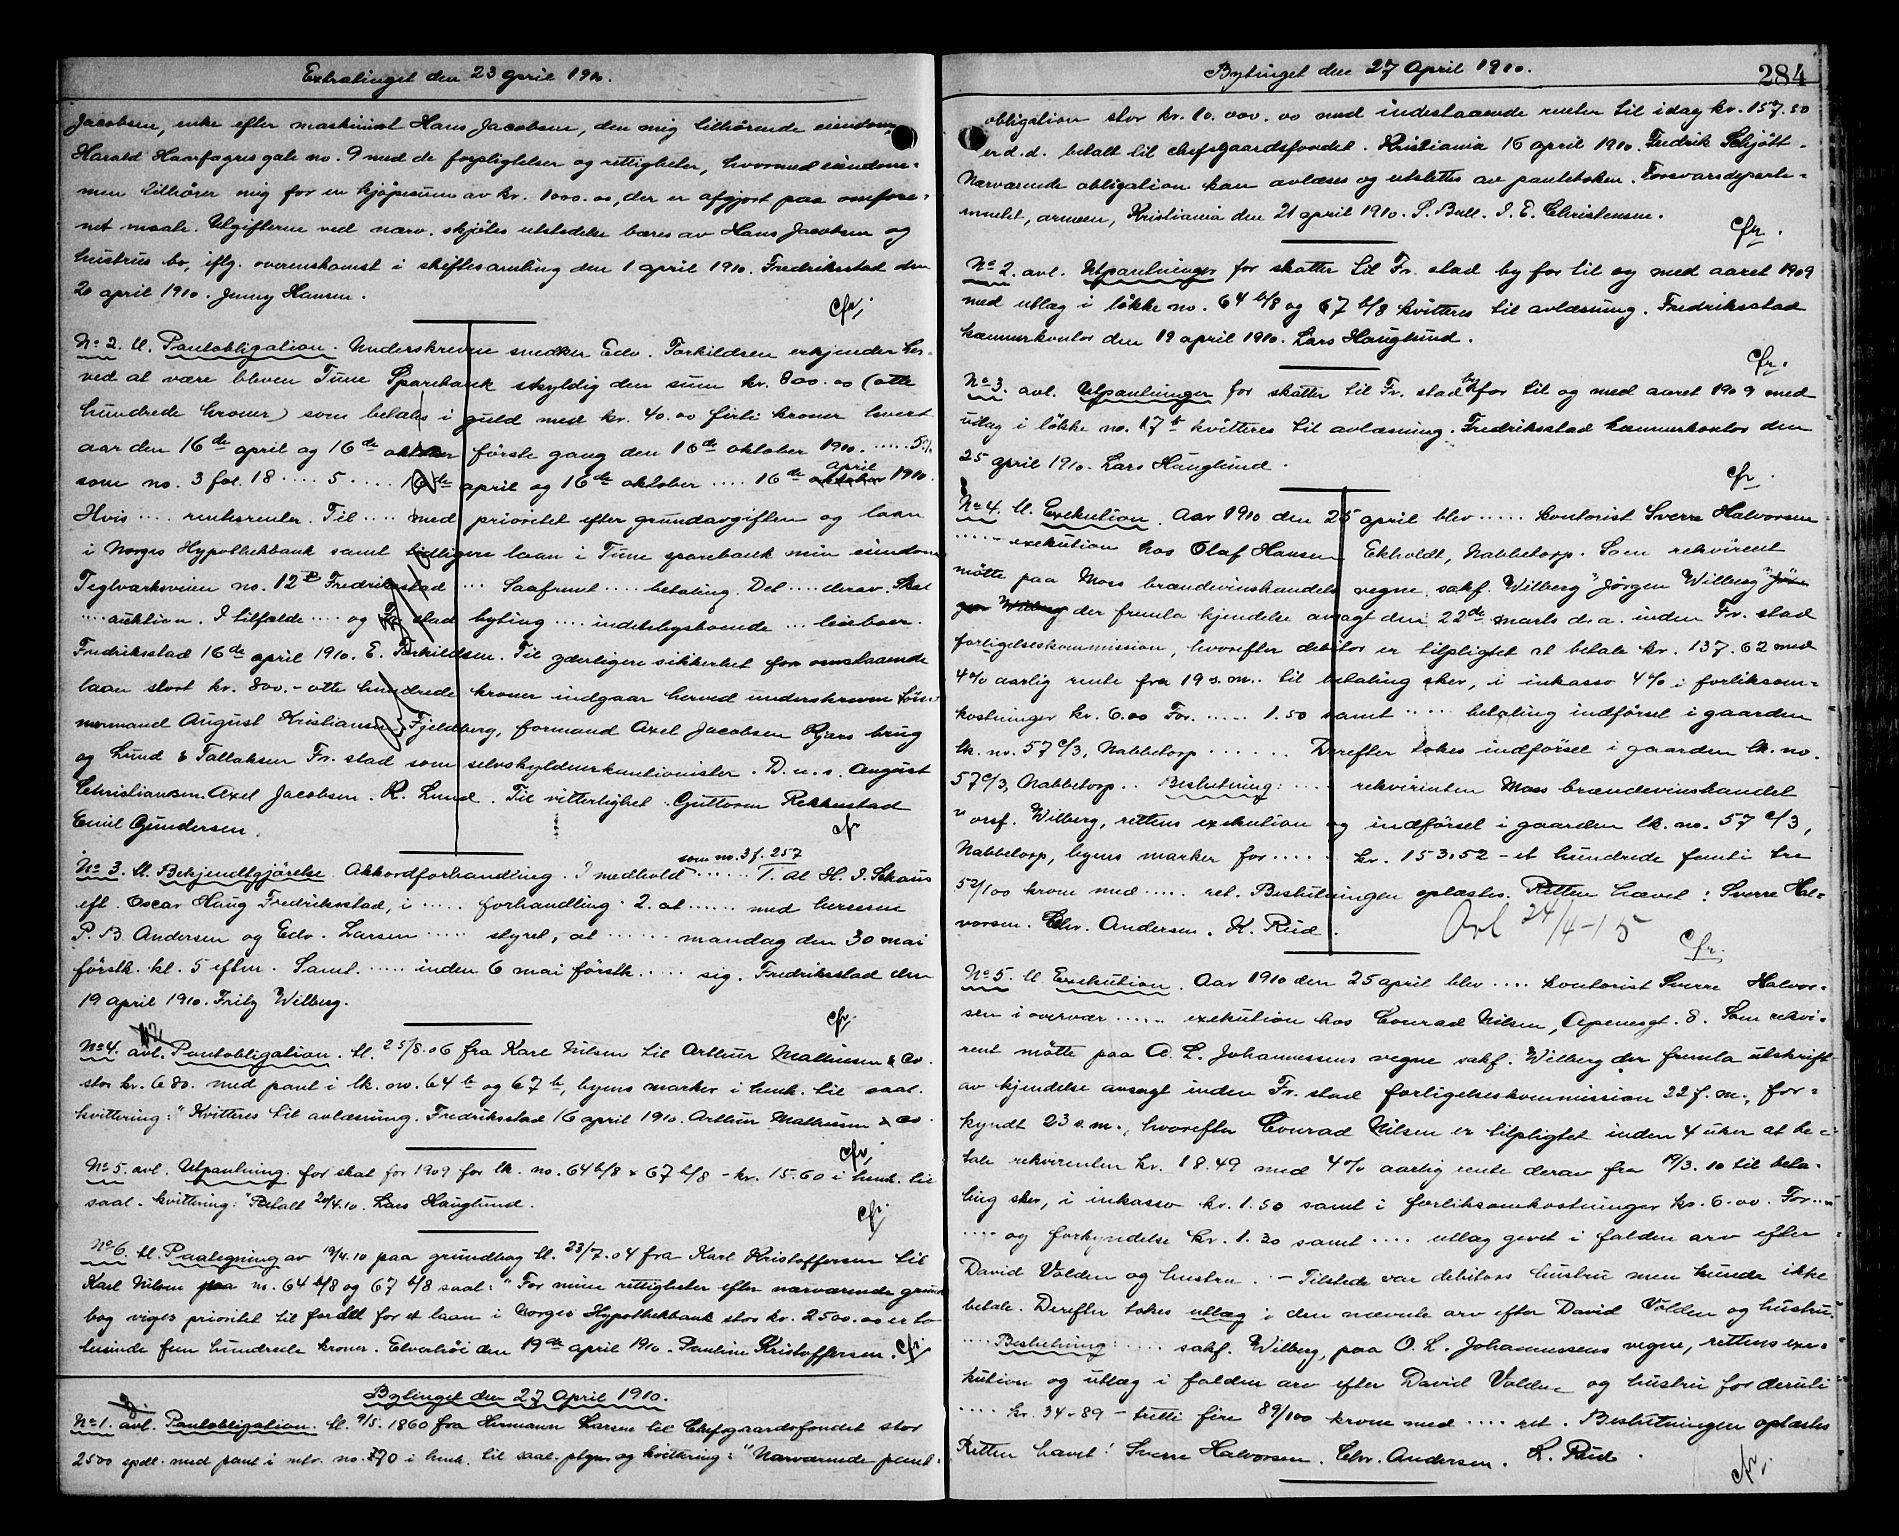 Extratinget den 23 april 1910.
Jacobsen, enke efter maskinist Hans Jacobsen, den mig tilhörende eiendom,
Harald Haarfagres gate no. 9 med de forpligtelser og rettigheter, hvormed eiendom-
men tilhører mig for en kjøpesum av kr. 1000.00, der er afgjort paa omfore-
net maate. Utgifterne ved nærv. skjötes utstedelse bæres av Hans Jacobsen og
hustrus bo, iflg. overenskomst i skiftesamling den 1 april 1910. Fredriksstad den
20 april 1910. Jenny Hansen.
cfr.
No 2. tl. Pantobligation. Underskrevne snedker Edv. Torkildsen erkjender her-
ved at være bleven Tune Sparebank skyldig den sum kr. 800.00 (otte
hundrede kroner) som betales i guld med kr. 40.00 förti kroner hvert
aar den 16de april og 16de oktober förste gang den 16de oktober 1910. ..... 5%
som no. 3 fol. 18 .... 5 .... 16de april og 16de oktober .... 16de oktober april 1910.
Hvis .... rentesrenter. Til .... med prioritet efter grundavgiften og laan
i Norges Hypothekbank samt tidligere laan i Tune sparebank min eiendom
Teglverksveien no. 12 B Fredriksstad ... Saafremt .... betaling. Det .... derav. Skal
.... auktion. I tilfælde .... og Fr. stad byting .... indenbysboende ... leieboer.
Fredriksstad 16de april 1910. E. Torkildsen. Til yderligere sikkerhet for ovenstaaende
laan stort kr. 800.- otte hundrede kroner indgaar herved underskrevne töm-
mermand August Kristiansen Fjeldberg, formand Axel Jacobsen Kjærs brug
og Lund & Tallaksen Fr. stad som selvskyldnerkautionister. D. u. s. August
Christiansen. Axel Jacobsen. R. Lund. Til vitterlighet: Guttorm Rekkestad
Emil Gundersen.
cfr
No 3. tl. Bekjendtgjörelse Akkordforhandling. I medhold som no. 3 f. 257 ...... 1. at H. J. Schous
eft. Oscar Haug Fredriksstad, i ..... forhandling. 2. at ...... med herrerne
P. B. Andersen og Edv. Larsen ..... styret, at ...... mandag den 30 mai
förstk. kl. 5 efterm. Saml. ..... inden 6 mai förstk. .... sig. Fredriksstad den
19 april 1910. Fritz Wilberg.
cfr.
No 4. avl. Pantobligation. tl. 25/8.06 fra Karl Nilsen til Arthur Mathiesen & Co.
stor kr. 680. med pant i lk. no. 64 b og 67 b, byens marker i henh. til saal.
kvittering: "Kvitteres til avlæsning. Fredriksstad 16 april 1910. Arthur Mathiesen & Co.
cfr.
No 5. avl. Utpantning for skat for 1909 for lk. no. 64 b/8 & 67 b/8 - kr. 15.60 i henh. til
saal. kvittering: "Betalt 20/4.10. Lars Hauglund.
cfr.
No 6. tl. Paategning av 19/4.10 paa grundbog tl. 23/7.04 fra Karl Kristoffersen til
Karl Nilsen paa no. 64 b/8 og 67 b/8 saal: "For mine rettigheter efter nærværende grund-
bog viges prioritet til fordel for et laan i Norges Hypothekbank stor kr. 2500.00 er to
tusinde fem hundrede kroner. Elverhöi den 19de april 1910. Pauline Kristoffersen.
cfr
Bytinget den 27 April 1910.
No 1. avl. Pantobligation. tl. 9/5. 1860 fra Hermann Larsen til Chefsgaardsfondet stor
2500 spdl. med pant i mtr. no. 270 i henh. til saal. ptgn. og kvittering: "Nærværende pant-
Bytinget den 27 April 1910.
284
obligation stor kr. 10.000.00 med indestaaende renter til idag kr. 157.50
er d. d. betalt til chefsgaardsfondet. Kristiania 16 april 1910. Fredrik Schjött.
Nærværende obligation kan avlæses og utslettes av panteboken. Forsvarsdeparte-
mentet, armeen, Kristiania den 21 april 1910. S. Bull. J. E. Christensen.
cfr.
No 2. avl. Utpantninger for skatter til Fr. stad by for til og med aaret 1909
med utlæg i lökke no. 64 b/8 og 67 b/8 kvitteres til avlæsning. Fredriksstad
kæmnerkontor den 19 april 1910. Lars Hauglund.
cfr.
No 3. avl. Utpantninger for skatter til Fr. stad by for til og med aaret 1909 med
utlæg i lökke no. 17 b kvitteres til avlæsning. Fredriksstad kæmnerkontor den
25 april 1910. Lars Hauglund.
cfr.
No 4. tl. Exekution. Aar 1910 den 25 april blev ..... kontorist Sverre Halvorsen
..... exekution hos Olaf Hansen Ekholdt, Nabbetorp. Som rekvirent
mötte paa Moss brændevinshandels vegne sakf. Wilberg "Jörgen Wilberg" Jör-
gen Wilberg der fremla kjendelse avsagt den 22de marts d. a. inden Fr. stad
forligelseskommission, hvorefter debitor er tilpligtet at betale kr. 137.62 med
4% aarlig rente fra 19 s. m. til betaling sker, i inkasso 4% i forliksom-
kostninger kr. 6.00 For. ..... 1.50 samt .... betaling indförsel i gaarden
lk. no. 57 c/3, Nabbetorp ...... Derefter tokes indförsel i gaarden lk. no.
57 c/3, Nabbetorp .. Beslutning: .... rekvirenten Moss brændevinshandel
v orsf. Wilberg, rettens exekution og indförsel i gaarden lk. no. 57 c/3,
Nabbetorp, byens marker for ..... kr. 153.52 - et hundrede femti tre
52/100 krone med ..... ret. Beslutningen oplæstes. Retten hævet: Sverre Hal-
vorsen. Chr. Andersen. K. Rud.
Avl 24/4-15
cfr.
No 5. tl Exekution. Aar 1910 den 25 april blev .... kontorist Sverre Halvor-
sen i overvær ..... exekution hos Conrad Nilsen, Apenesgt. 8. Som rekvi-
rent mötte paa O. L. Johannessens vegne sakf. Wilberg der fremla utskrift
av kjendelse avsagt inden Fr. stad forligelseskommission 22 f. m., for-
kyndt 23 s. m., hvorefter Conrad Nilsen er tilpligtet inden 4 uker at be-
tale rekvirenten kr. 18.49 med 4% aarlig rente derav fra 19/3.10 til beta-
ling sker, i inkasso kr. 1.50 samt i forliksomkostninger kr. 6.00. For ....
.... og forkyndelse kr. 1.30 samt .... utlæg gevet i falden arv efter
David Volden og hustru. - Tilstede var debitors hustru men kunde ikke
betale. Derefter tokes utlæg i den nævnte arv efter David Volden og hustru.
.... Beslutning: .... sakf. Wilberg, paa O. L. Johannessens vegne, rettens exe-
kution og utlæg i falden arv efter David Volden og hustru for deruti
.... kr. 34.89 - tretti fire 89/100 krone med .... ret. Beslutningen oplæstes
Retten hævet! Sverre Halvorsen. Chr. Andersen. K. Rud.
cfr.